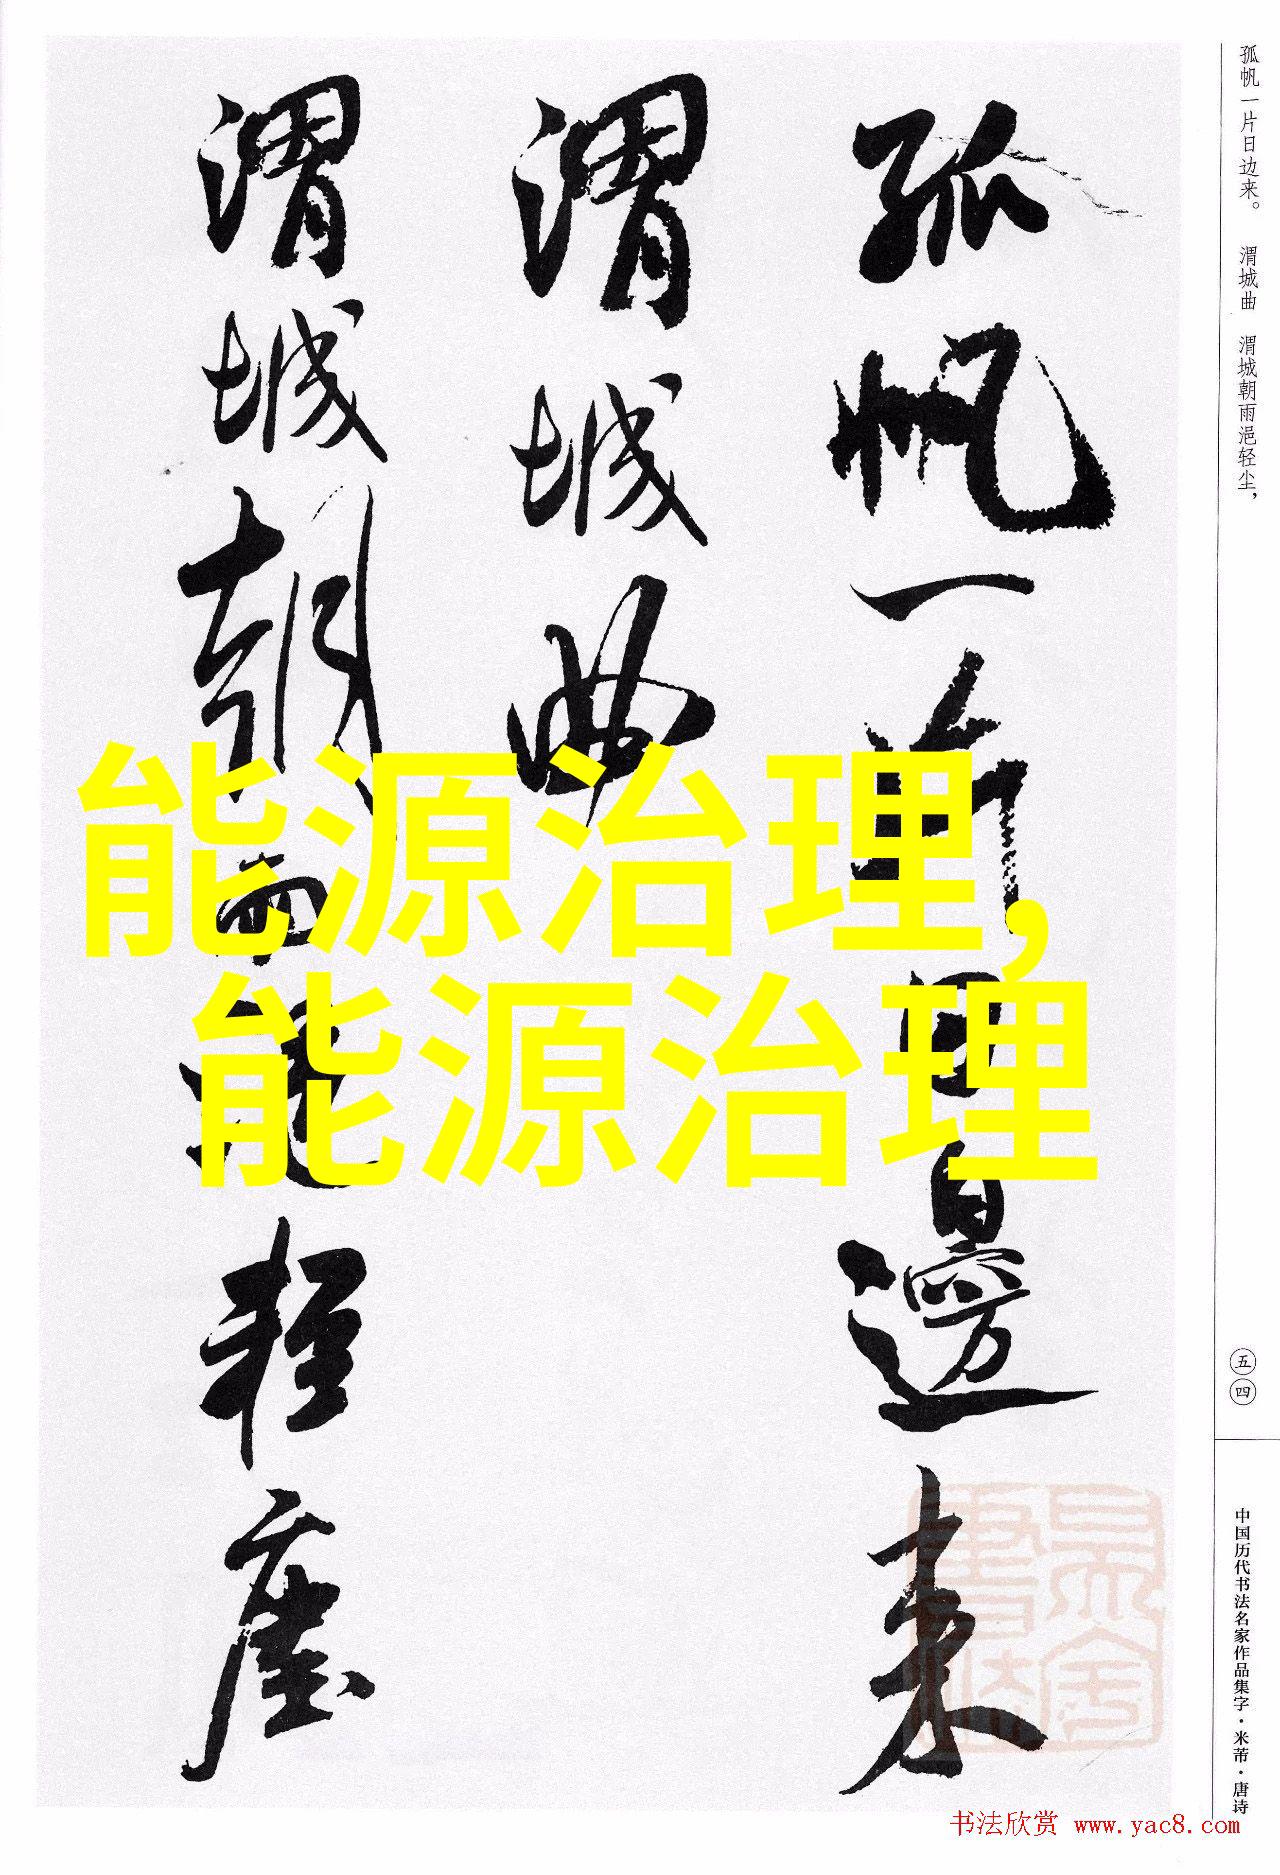 孤帆一片日边来。 渭城曲 渭城朝雨浥轻尘，
孤帆一片日邊来
渭城曲
渭城朝雨浥轻塵
能源治理，
能源治理
五四
中国历代书法名家作品集字·米芾·唐诗
书法欣赏 www.yac8.com